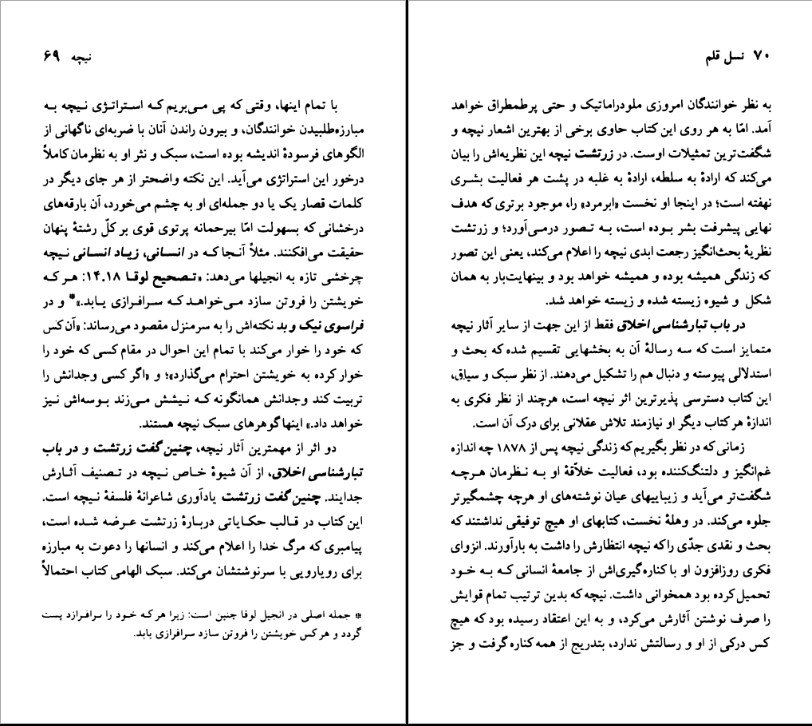 نیچه ۶۹
با تمام اینها، وقتی که پی می‌بریم که استراتژی نیچه به
مبارزه‌طلبیدن خوانندگان، و بیرون راندن آنان با ضربه‌ای ناگهانی از
الگوهای فرسودهٔ اندیشه بوده است، سبک و نثر او به نظرمان کاملاً
درخور این استراتژی می‌آید. این نکته واضحتر از هر جای دیگر در
کلمات قصار یک یا دو جمله‌ای او به چشم می‌خورد، آن بارقه‌های
درخشانی که بسهولت امّا بیرحمانه پرتوی قوی بر کلّ رشتهٔ پنهان
حقیقت می‌افکنند. مثلاً آنجا که در انسانی، زیاد انسانی نیچه
چرخشی تازه به انجیلها می‌دهد: «تصحیح لوقا ۱۴،۱۸: هر که
خویشتن را فروتن سازد می‌خواهد که سرافرازی یابد.»* و در
فراسوی نیک و بد نکته‌اش را به سرمنزل مقصود می‌رساند: «آن کس
که خود را خوار می‌کند با تمام این احوال در مقام کسی که خود را
خوار کرده به خویشتن احترام می‌گذارد»؛ و «اگر کسی وجدانش را
تربیت کند وجدانش همانگونه که نیشش می‌زند بوسه‌اش نیز
خواهد داد.» اینها گوهرهای سبک نیچه هستند.
دو اثر از مهمترین آثار نیچه، چنین گفت زرتشت و در باب
تبارشناسی اخلاق، از آن شیوهٔ خاص نیچه در تصنیف آثارش
جدایند. چنین گفت زرتشت یادآوری شاعرانهٔ فلسفهٔ نیچه است.
این کتاب در قالب حکایاتی دربارهٔ زرتشت عرضه شده است،
پیامبری که مرگ خدا را اعلام می‌کند و انسانها را دعوت به مبارزه
برای رویارویی با سرنوشتشان می‌کند. سبک الهامی کتاب احتمالاً
* جمله اصلی در انجیل لوقا چنین است: زیرا هر که خود را سرافرازد پست
گردد و هر کس خویشتن را فروتن سازد سرافرازی یابد.
۷۰ نسل قلم
به نظر خوانندگان امروزی ملودراماتیک و حتی پرطمطراق خواهد
آمد. امّا به هر روی این کتاب حاوی برخی از بهترین اشعار نیچه و
شگفت‌ترین تمثیلات اوست. در زرتشت نیچه این نظریه‌اش را بیان
می‌کند که ارادهٔ به سلطه، ارادهٔ به غلبه در پشت هر فعالیت بشری
نهفته است؛ در اینجا او نخست «ابرمرد» را، موجود برتری که هدف
نهایی پیشرفت بشر بوده است، به تصور درمی‌آورد؛ و زرتشت
نظریهٔ بحث‌انگیز رجعت ابدی نیچه را اعلام می‌کند، یعنی این تصور
که زندگی همیشه بوده و همیشه خواهد بود و بینهایت‌بار به همان
شکل و شیوه زیسته شده و زیسته خواهد شد.
در باب تبارشناسی اخلاق فقط از این جهت از سایر آثار نیچه
متمایز است که سه رسالهٔ آن به بخشهایی تقسیم شده که بحث و
استدلالی پیوسته و دنبال هم را تشکیل می‌دهند. از نظر سبک و سیاق،
این کتاب دسترسی پذیرترین اثر نیچه است، هرچند از نظر فکری به
اندازهٔ هر کتاب دیگر او نیازمند تلاش عقلانی برای درک آن است.
زمانی که در نظر بگیریم که زندگی نیچه پس از ۱۸۷۸ چه اندازه
غم‌انگیز و دلتنگ‌کننده بود، فعالیت خلاّقهٔ او به نظرمان هرچه
شگفت‌تر می‌آید و زیباییهای عیان نوشته‌های او هرچه چشمگیرتر
جلوه می‌کند. در وهلهٔ نخست، کتابهای او هیچ توفیقی نداشتند که
بحث و نقدی جدّی را که نیچه انتظارش را داشت به بارآورند. انزوای
فکری روزافزون او با کناره‌گیری‌اش از جامعهٔ انسانی که به خود
تحمیل کرده بود همخوانی داشت. نیچه که بدین ترتیب تمام قوایش
را صرف نوشتن آثارش می‌کرد، و به این اعتقاد رسیده بود که هیچ
کس درکی از او و رسالتش ندارد، بتدریج از همه کناره گرفت و جز